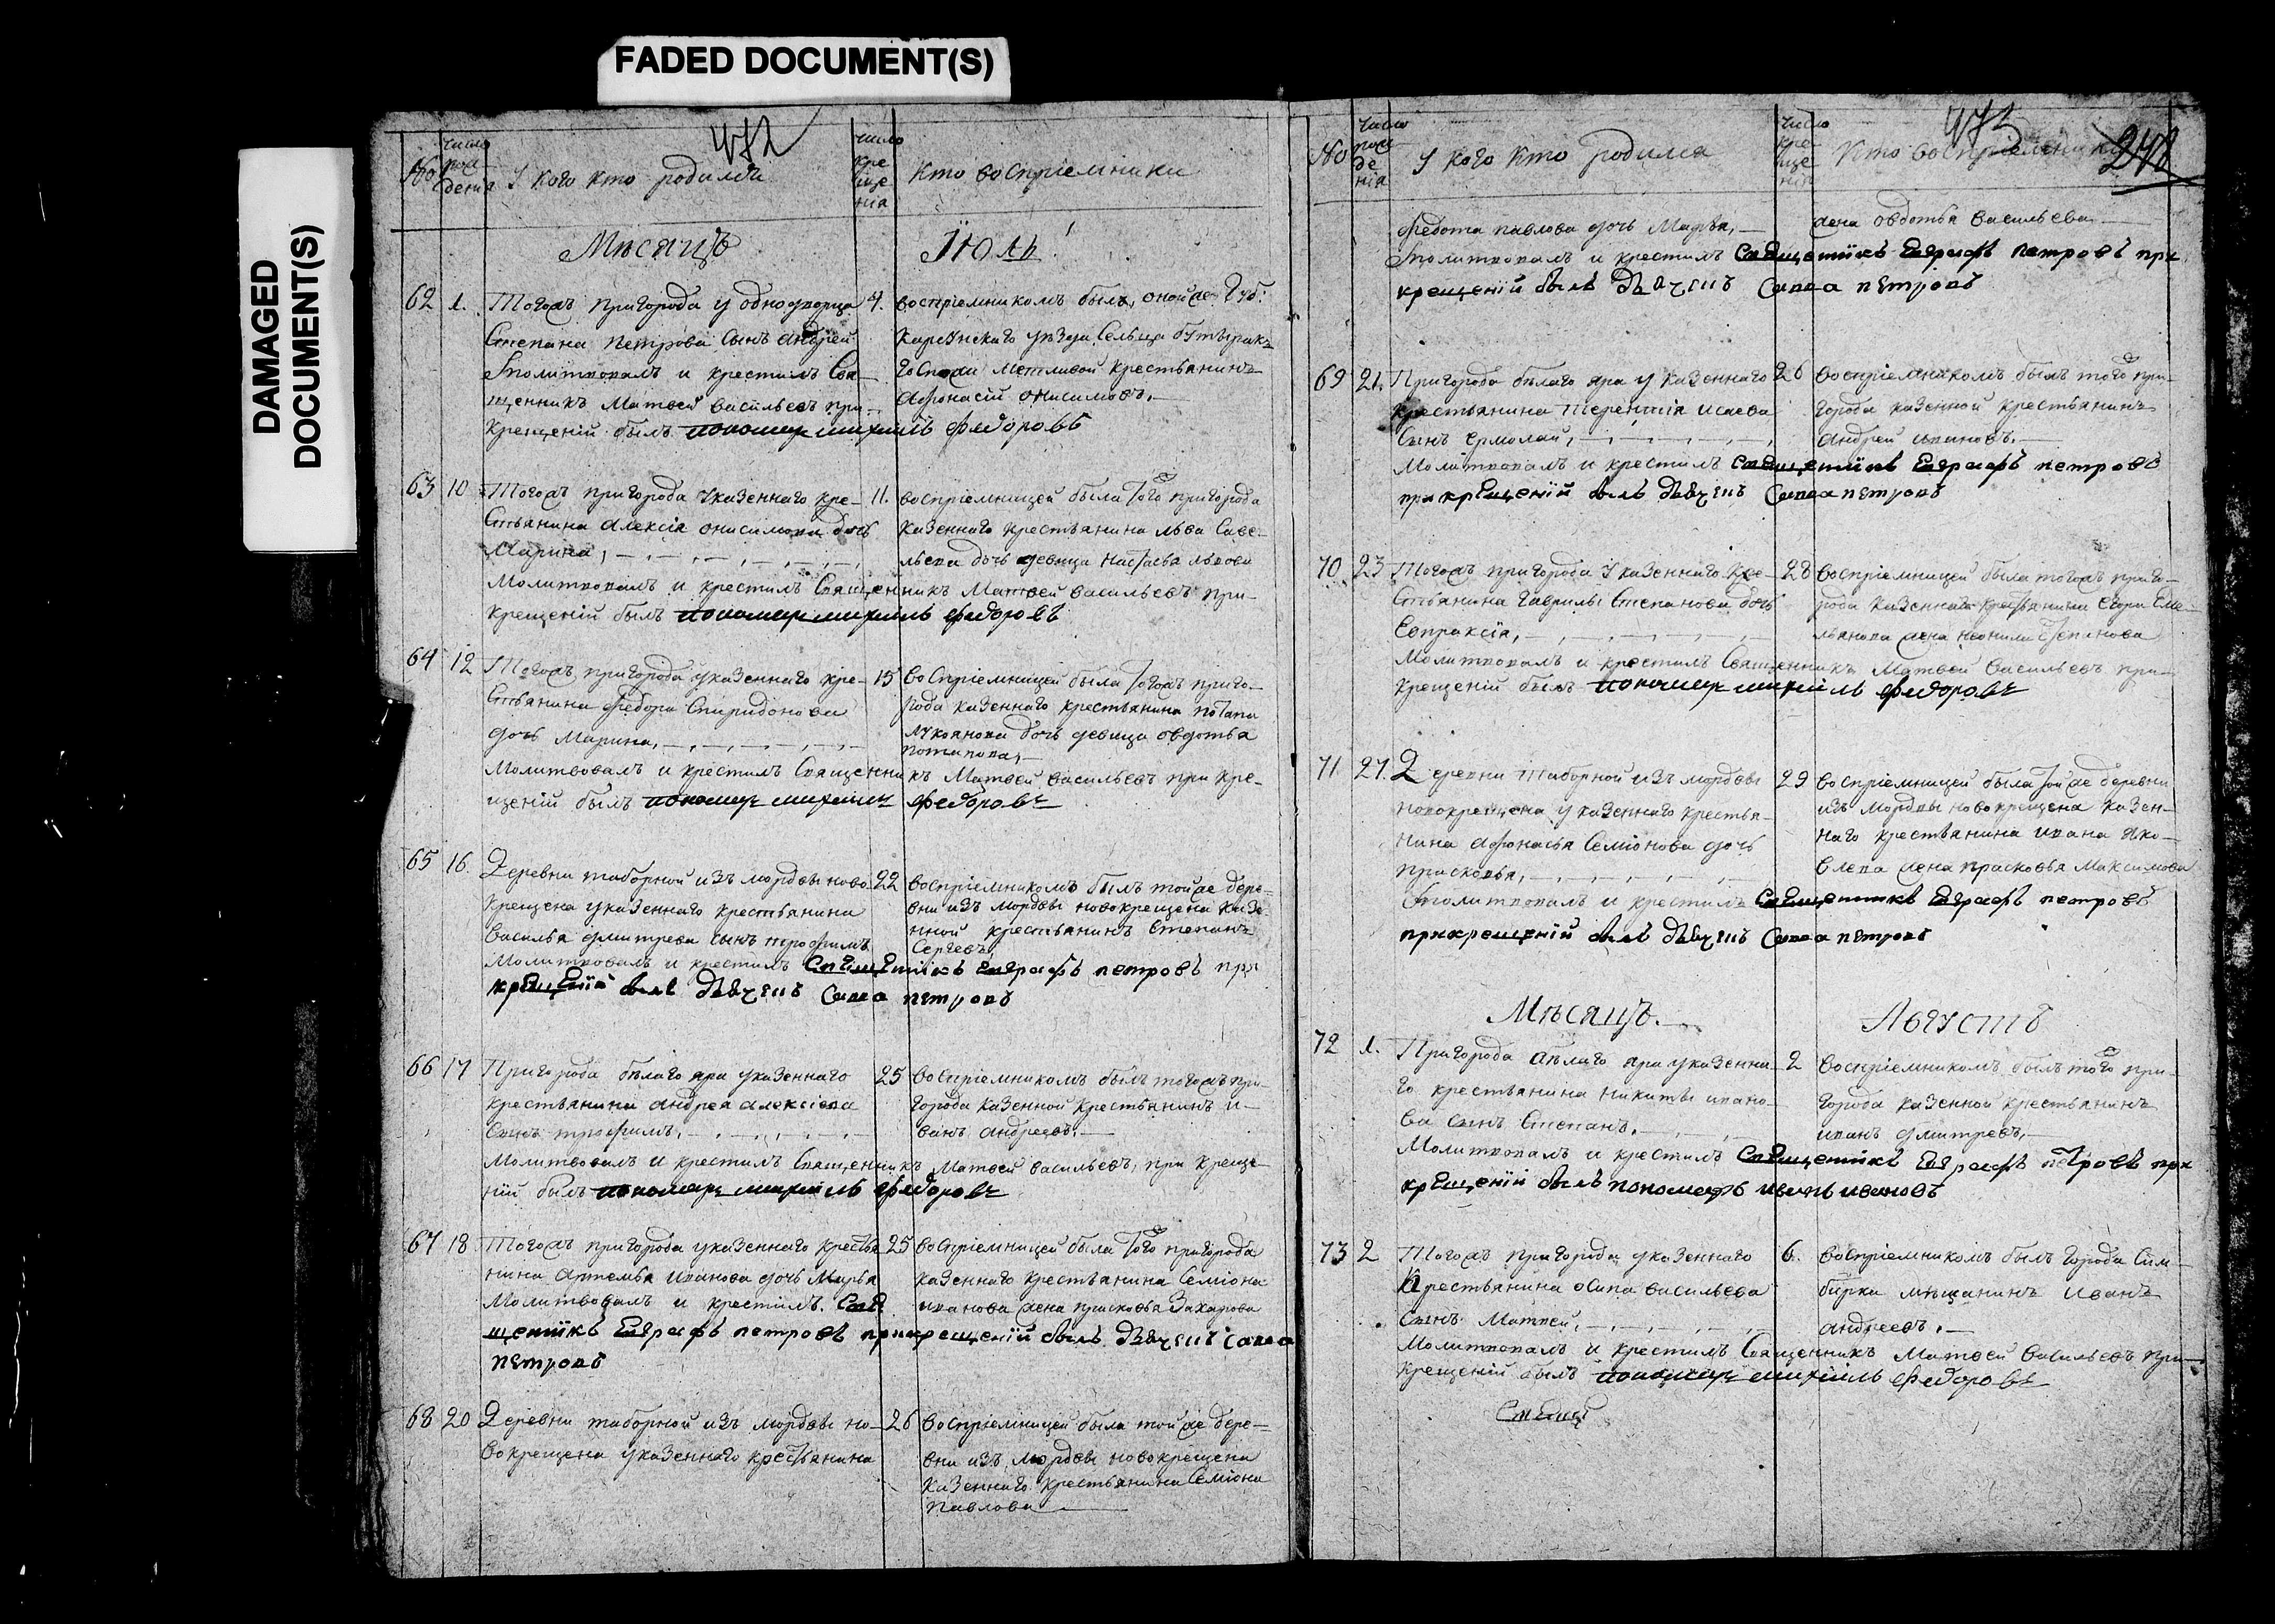 FADED DOCUMENT(S)
DAMAGED
DOCUMENT(S)
472
No
число
рож
дения
У кого кто родился
число
кре
ще
нія
Кто восприемники
Мѣсяцъ
Іюль
62
1.
Тогожъ пригорода у однодворца
Степана Петрова сынъ Андрей
Молитвовалъ и крестилъ Свя-
щенникъ Матвей Васильевъ при
крещеній былъ пономарь Михаилъ Федоровъ
4.
восприемникомъ былъ, оной же Губ:
Карсунскаго уѣзда Сельца
Госпожи крестьянинъ
Афонасій Онисимовъ.
63
10
Тогожъ пригорода у казеннаго кре-
стьянина Алексія Онисимова дочь
Марина,
Молитвовалъ и крестилъ Священникъ Матвей Васильевъ при
крещеній былъ пономарь Михаилъ Федоровъ
11.
восприемницей была того пригорода
казеннаго крестьянина Льва Саве-
льева дочь девица Настасья Львова
64
12
Тогожъ пригорода у казеннаго кре-
стьянина Федора Спиридонова
дочь Марина,
Молитвовалъ и крестилъ Священникъ Матвей Васильевъ при кре-
щеній былъ пономарь Михаилъ Федоровъ
15
восприемницей была тогожъ приго-
рода казеннаго крестьянина Потапа
Лукоянова дочь девица Овдотья
Потапова,
65
16.
Деревни Таборной изъ мордвы ново-
крещена у казеннаго крестьянина
Василья Дмитрева сынъ Трофимъ
Молитвовалъ и крестилъ Священникъ Евграфъ Петровъ при
крещеній былъ дьячекъ Савва Петровъ
22
восприемникомъ былъ той же дере-
вни изъ мордвы новокрещена казе-
нной крестьянинъ Степанъ
Сергеевъ
66
17
Пригорода бѣлаго яра у казеннаго
крестьянина Андрея Алексіева
сынъ Трофимъ,
Молитвовалъ и крестилъ Священникъ Матвей Васильевъ, при креще-
ній былъ пономарь Михаилъ Федоровъ
25
восприемникомъ былъ тогожъ при-
города казенной крестьянинъ И-
ванъ Андреевъ.
67
18
Тогожъ пригорода у казеннаго крестья
нина Артемья Иванова дочь Марья
Молитвовалъ и крестилъ. Свя
щенникъ Евграфъ Петровъ при крещеній былъ дьячекъ Савва
Петровъ
25
восприемницей была того пригорода
казеннаго крестьянина Семіона
Иванова жена Прасковья Захарова
68
20
Деревни Таборной изъ мордвы но-
вокрещена у казеннаго крестьянина
26
восприемницей была той же дере-
вни изъ мордвы новокрещена
казеннаго крестьянина Семіона
Павлова
473
No
число
рож
де
нія
У кого кто родился
число
кре
ще
нія
Кто восприемники
248
Федота Павлова дочь Марья,
Молитвовалъ и крестилъ Священникъ Евграфъ Петровъ при
крещеній былъ дьячекъ Савва Петровъ
жена Овдотья Васильева
69
21.
Пригорода бѣлаго яра у казеннаго
крестьянина Терентія Исаева
сынъ Ермолай,
Молитвовалъ и крестилъ Священникъ Евграфъ Петровъ
при крещеній былъ дьячекъ Савва Петровъ
26
восприемникомъ былъ того при-
города казенной крестьянинъ
Андрей Ивановъ.
70
23
Тогожъ пригорода у казеннаго кре-
стьянина Гаврилы Степанова дочь
Евпраксія,
Молитвовалъ и крестилъ Священникъ Матвей Васильевъ при
крещеній былъ пономарь Михаилъ Федоровъ
28
восприемницей была тогожъ приго-
рода казеннаго крестьянина Егора Еме-
льянова жена Неонила Степанова
71
27.
Деревни Таборной изъ мордвы
новокрещена у казеннаго крестья-
нина Афонасья Семіонова дочь
Прасковья,
Молитвовалъ и крестилъ Священникъ Евграфъ Петровъ
при крещеній былъ дьячекъ Савва Петровъ
29
восприемницей была той же деревни
изъ мордвы новокрещена казен-
наго крестьянина Ивана Яко-
влева жена Прасковья Максимова
Мѣсяцъ.
Августъ
72
1.
Пригорода бѣлаго яра у казенна
го крестьянина Никиты Ивано-
ва сынъ Степанъ.
Молитвовалъ и крестилъ Священникъ Евграфъ Петровъ при
крещеній былъ пономарь Иванъ Ивановъ
2
восприемникомъ былъ того при-
города казенной крестьянинъ
Иванъ Дмитревъ,
73
2
Тогожъ пригорода у казеннаго
Крестьянина Осипа Васильева
сынъ Матвей,
Молитвовалъ и крестилъ Священникъ Матвей Васильевъ при
крещеній былъ пономарь Михаилъ Федоровъ
6.
восприемникомъ былъ города Сим-
бирка мѣщанинъ Иванъ
Андреевъ.